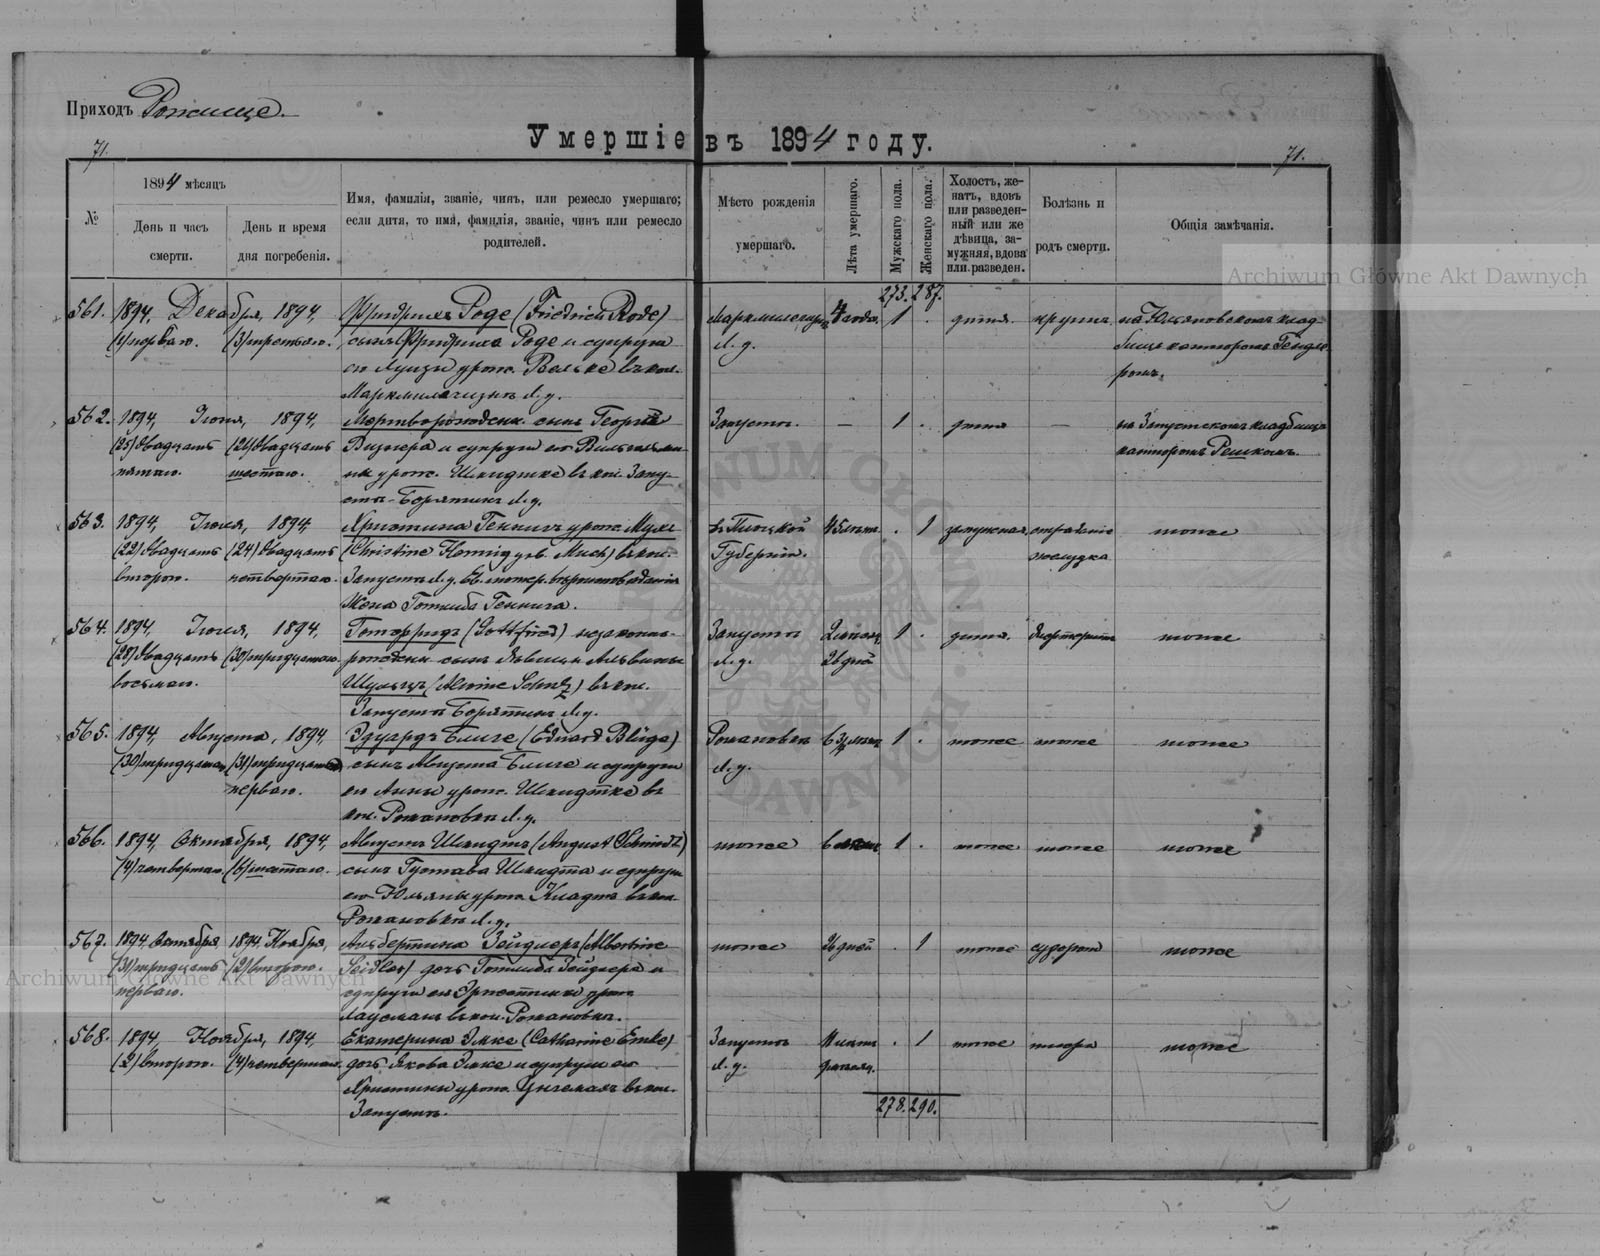 Приходъ Рожище.
Умершіе въ 1894 году.
71.
71.
№
1894 мѣсяцъ
День и часъ смерти.
День и время дня погребенія.
Имя, фамилія, званіе, чинъ, или ремесло умершаго;
если дитя, то имя, фамилія, званіе, чинъ или ремесло
родителей.
Мѣсто рожденія
умершаго.
Лѣта умершаго.
Мужскаго пола.
Женскаго пола.
Холостъ, же-
натъ, вдовъ
или разведен-
ный или же
дѣвица, за-
мужняя, вдова
или разведен.
Болѣзнь и
родъ смерти.
Общія замѣчанія.
273. 287.
561. 1894, Декабря, 1894, Фридрихъ Роде (Friedrich Rode) 4 года. 1 . дитя крупъ на Юльяновскомъ клад-
(1) перваго. (3) третьяго. сынъ Фридриха Роде и супруги Л. у. бищѣ канторомъ
его Луизы урож. въ кол.
Л. у.
562. 1894, Іюля, 1894, Мертворожденн. сынъ Георга Запустъ. — 1 . дитя — на Запустскомъ кладбищѣ
(25) двадцать (26) двадцать и супруги его Вильгельми- канторомъ Решкомъ.
пятаго. шестаго. ны урож. Шмидтке въ кол. Запу-
стъ-Борятинъ Л. у.
563. 1894, Іюля, 1894, Христина Геннигъ урож. Мухъ въ Плоцкой 45 лѣтъ . 1 замужняя страданіе тоже
(22) двадцать (24) двадцать (Christine Hennig geb. Much) въ кол. Губерніи. желудка
втораго. четвертаго. Запустъ Л. у.
Жена Готлиба Геннига.
564. 1894, Іюля, 1894, Готфридъ (Gottfried) незаконно- Запустъ 2 мѣсяц. 1 . дитя. дифтеритъ тоже
(28) двадцать (30) тридцатаго. рожденн. сынъ дѣвицы Альвины Л. у. 26 дней
восьмаго. Шульцъ (Alwine Schulz) въ кол.
Запустъ Борятинъ Л. у.
565. 1894, Августа, 1894, Эдуардъ Блиге (Eduard Blüge) Рожановка 1 . тоже тоже тоже
(30) тридцатаго (31) тридцать сынъ Августа Блиге и супруги Л. у.
перваго. его Анны урож. Шмидтке въ
кол. Рожановка Л. у.
566. 1894, Октября, 1894, Августъ Шмидтъ (August Schmidt) тоже 6 1 . тоже тоже тоже
(4) четвертаго. (6) шестаго. сынъ Густава Шмидта и супруги
его Юльяны урож. въ кол.
Рожановка Л. у.
567. 1894, Октября, 1894, Ноября, Альбертина Зейдлеръ (Albertine тоже 26 дней . 1 тоже судороги тоже
(31) тридцать (2) втораго. Seidler) дочь Готлиба Зейдлера и
перваго. супруги его Эрнестины урож.
въ кол. Рожановка.
568. 1894, Ноября, 1894, Екатерина Эмке (Catharine Emke) Запустъ . 1 тоже тоже
(2) втораго. (4) четвертаго. дочь Якова Эмке и супруги его Л. у.
Христины урож. въ кол.
Запустъ.
278. 290.
Archiwum Główne Akt Dawnych
Archiwum Główne Akt Dawnych